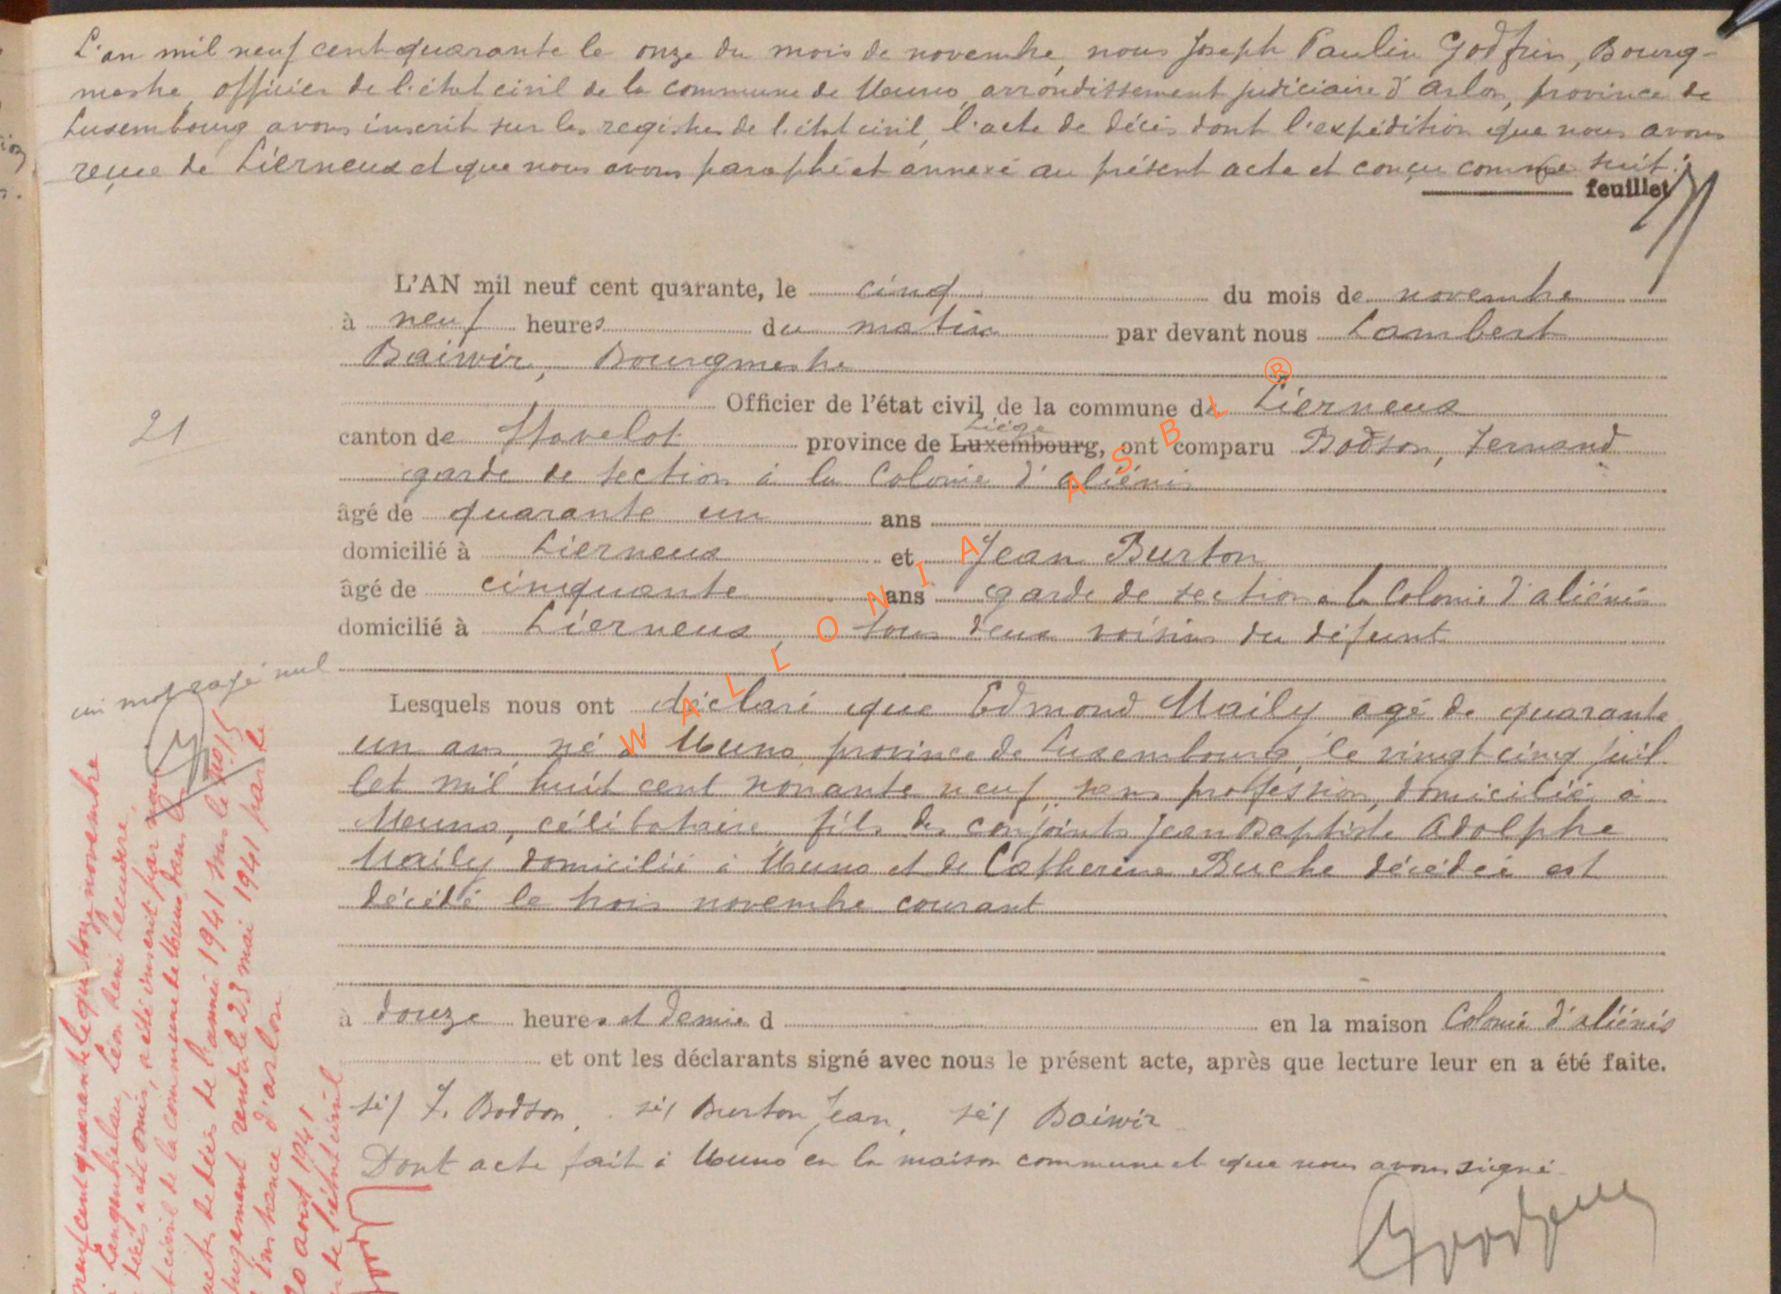 L'an mil neuf cent quarante le onze du mois de novembre, nous Joseph Paulin Godfrin, Bourg-
mestre, officier de l'état civil de la commune de Muno, arrondissement judiciaire d'Arlon, province de
Luxembourg avons inscrit sur les registres de l'état civil, l'acte de décès dont l'expédition que nous avons
reçue de Lierneux et que nous avons paraphé et annexé au présent acte et conçu comme suit:
feuillet
L'AN mil neuf cent quarante, le cinq du mois de novembre
à neuf heures du matin par devant nous Lambert
Baiwir, Bourgmestre
Officier de l'état civil, de la commune de Lierneux
21
Liège
canton de Stavelot province de Luxembourg, ont comparu Bodson, Fernand
garde de section à la Colonie d'aliénés
âgé de quarante un ans
domicilié à Lierneux et Jean Burton
âgé de cinquante ans garde de section à la Colonie d'aliénés
domicilié à Lierneux, tous deux voisins du défunt
un mot rayé nul
Lesquels nous ont déclaré que Edmond Maily agé de quarante
un ans, né à Muno, province de Luxembourg, le vingt cinq juil
let mil huit cent nonante neuf, sans proffession, domicilié à
Muno, célibataire, fils des conjoints Jean Baptiste Adolphe
Maily domicilié à Muno et de Catherine Buche décédée est
décédé le trois novembre courant
à douze heures et demie d en la maison Colonie d'aliénés
et ont les déclarants signé avec nous le présent acte, après que lecture leur en a été faite.
sé/ F. Bodson, sé/ Burton Jean, sé/ Baiwir
Dont acte fait à Muno en la maison commune et que nous avons signé
neuf cent quarante le quatorze novembre
Léon René Lecuivre,
décès a été omis, a été inscrit par nous
civil de la commune de Muno dans les
actes de décès de l'année 1941 sous le no 15
jugement rendu le 23 mai 1941 par le
instance d'Arlon
20 août 1941
de l'état civil
WALLONIA ASBL ®